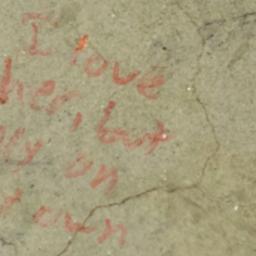 I love
her, but
on
own